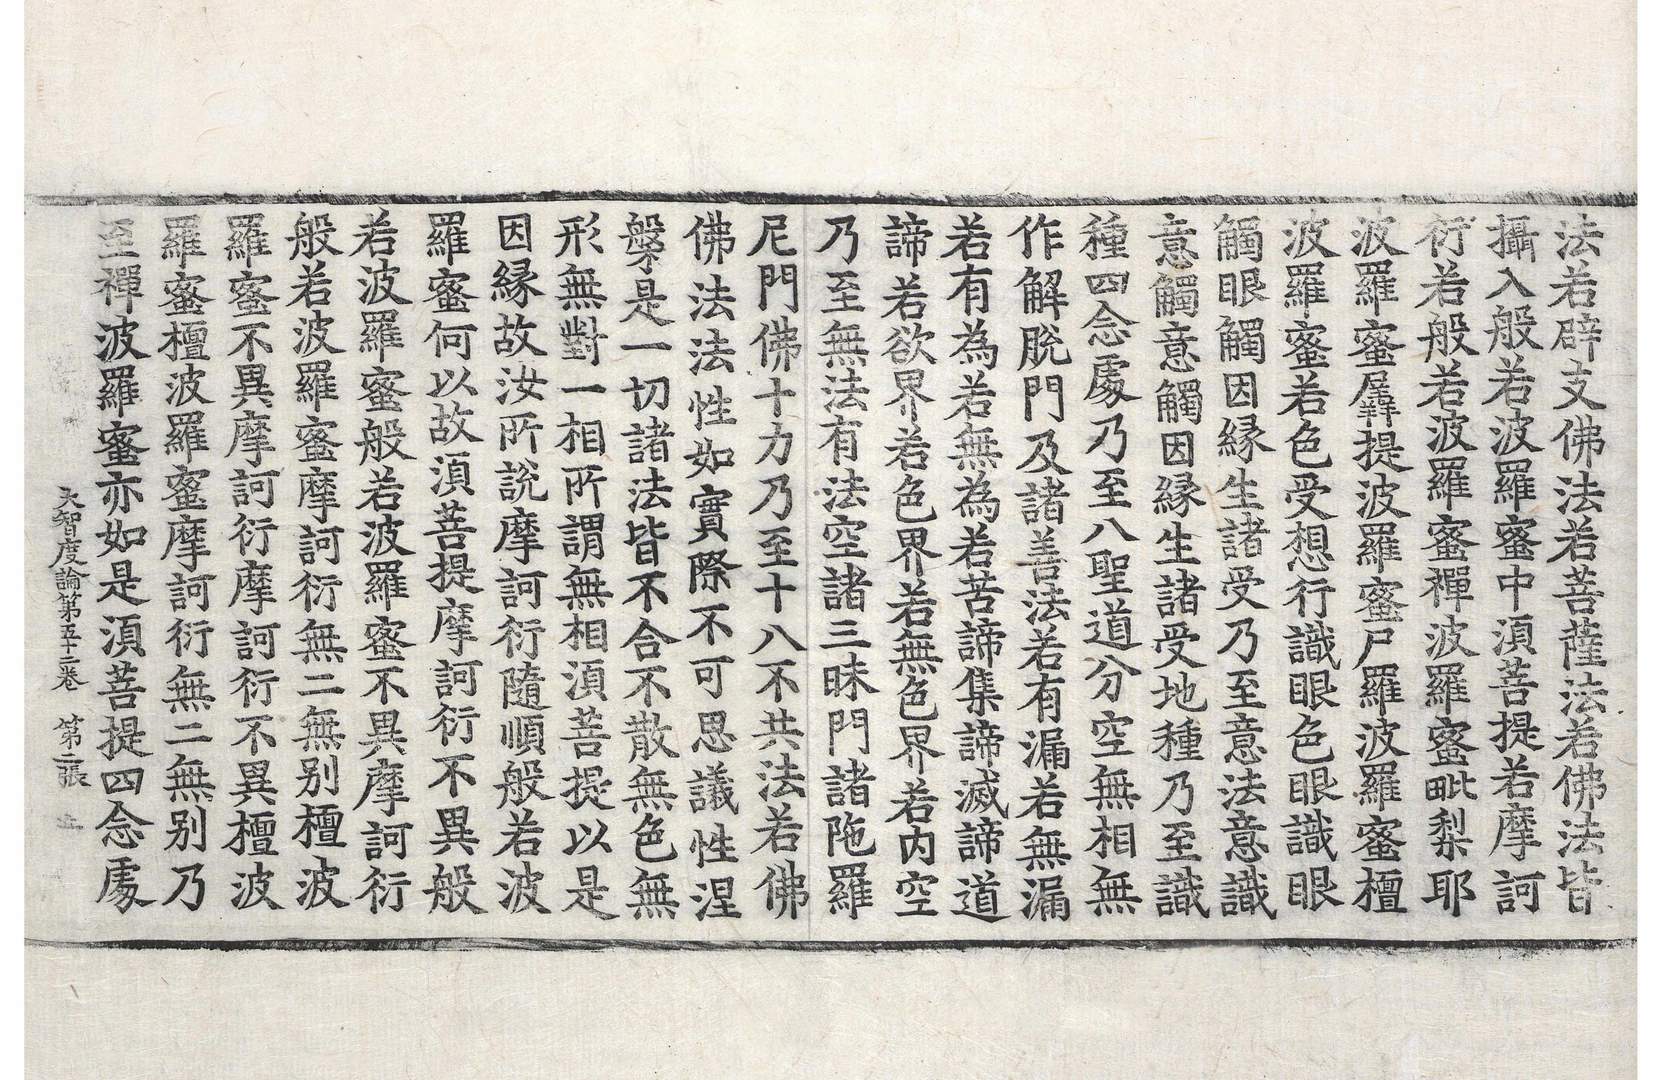 法若辟支佛法若菩薩法若佛法皆
攝入般若波羅蜜中湏菩提若摩訶
衍若般若波羅蜜禪波羅蜜毗梨耶
波羅蜜羼提波羅蜜尸羅波羅蜜檀
波羅蜜若色受想行識眼色眼識眼
觸眼觸因縁生諸受乃至意法意識
意觸意觸因縁生諸受地種乃至識
種四念處乃至八聖道分空無相無
作解脫門及諸善法若有漏若無漏
若有為若無為若苦諦集諦滅諦道
諦若欲界若色界若無色界若内空
乃至無法有法空諸三昧門諸陁羅
尼門佛十力乃至十八不共法若佛
佛法法性如實際不可思議性涅
槃是一切諸法皆不合不散無色無
形無對一相所謂無相湏菩提以是
因縁故汝所說摩訶衍隨順般若波
羅蜜何以故湏菩提摩訶衍不異般
若波羅蜜般若波羅蜜不異摩訶衍
般若波羅蜜摩訶衍無二無别檀波
羅蜜不異摩訶衍摩訶衍不異檀波
羅蜜檀波羅蜜摩訶衍無二無别乃
至禪波羅蜜亦如是湏菩提四念處
大智度論第五十二卷 第二張